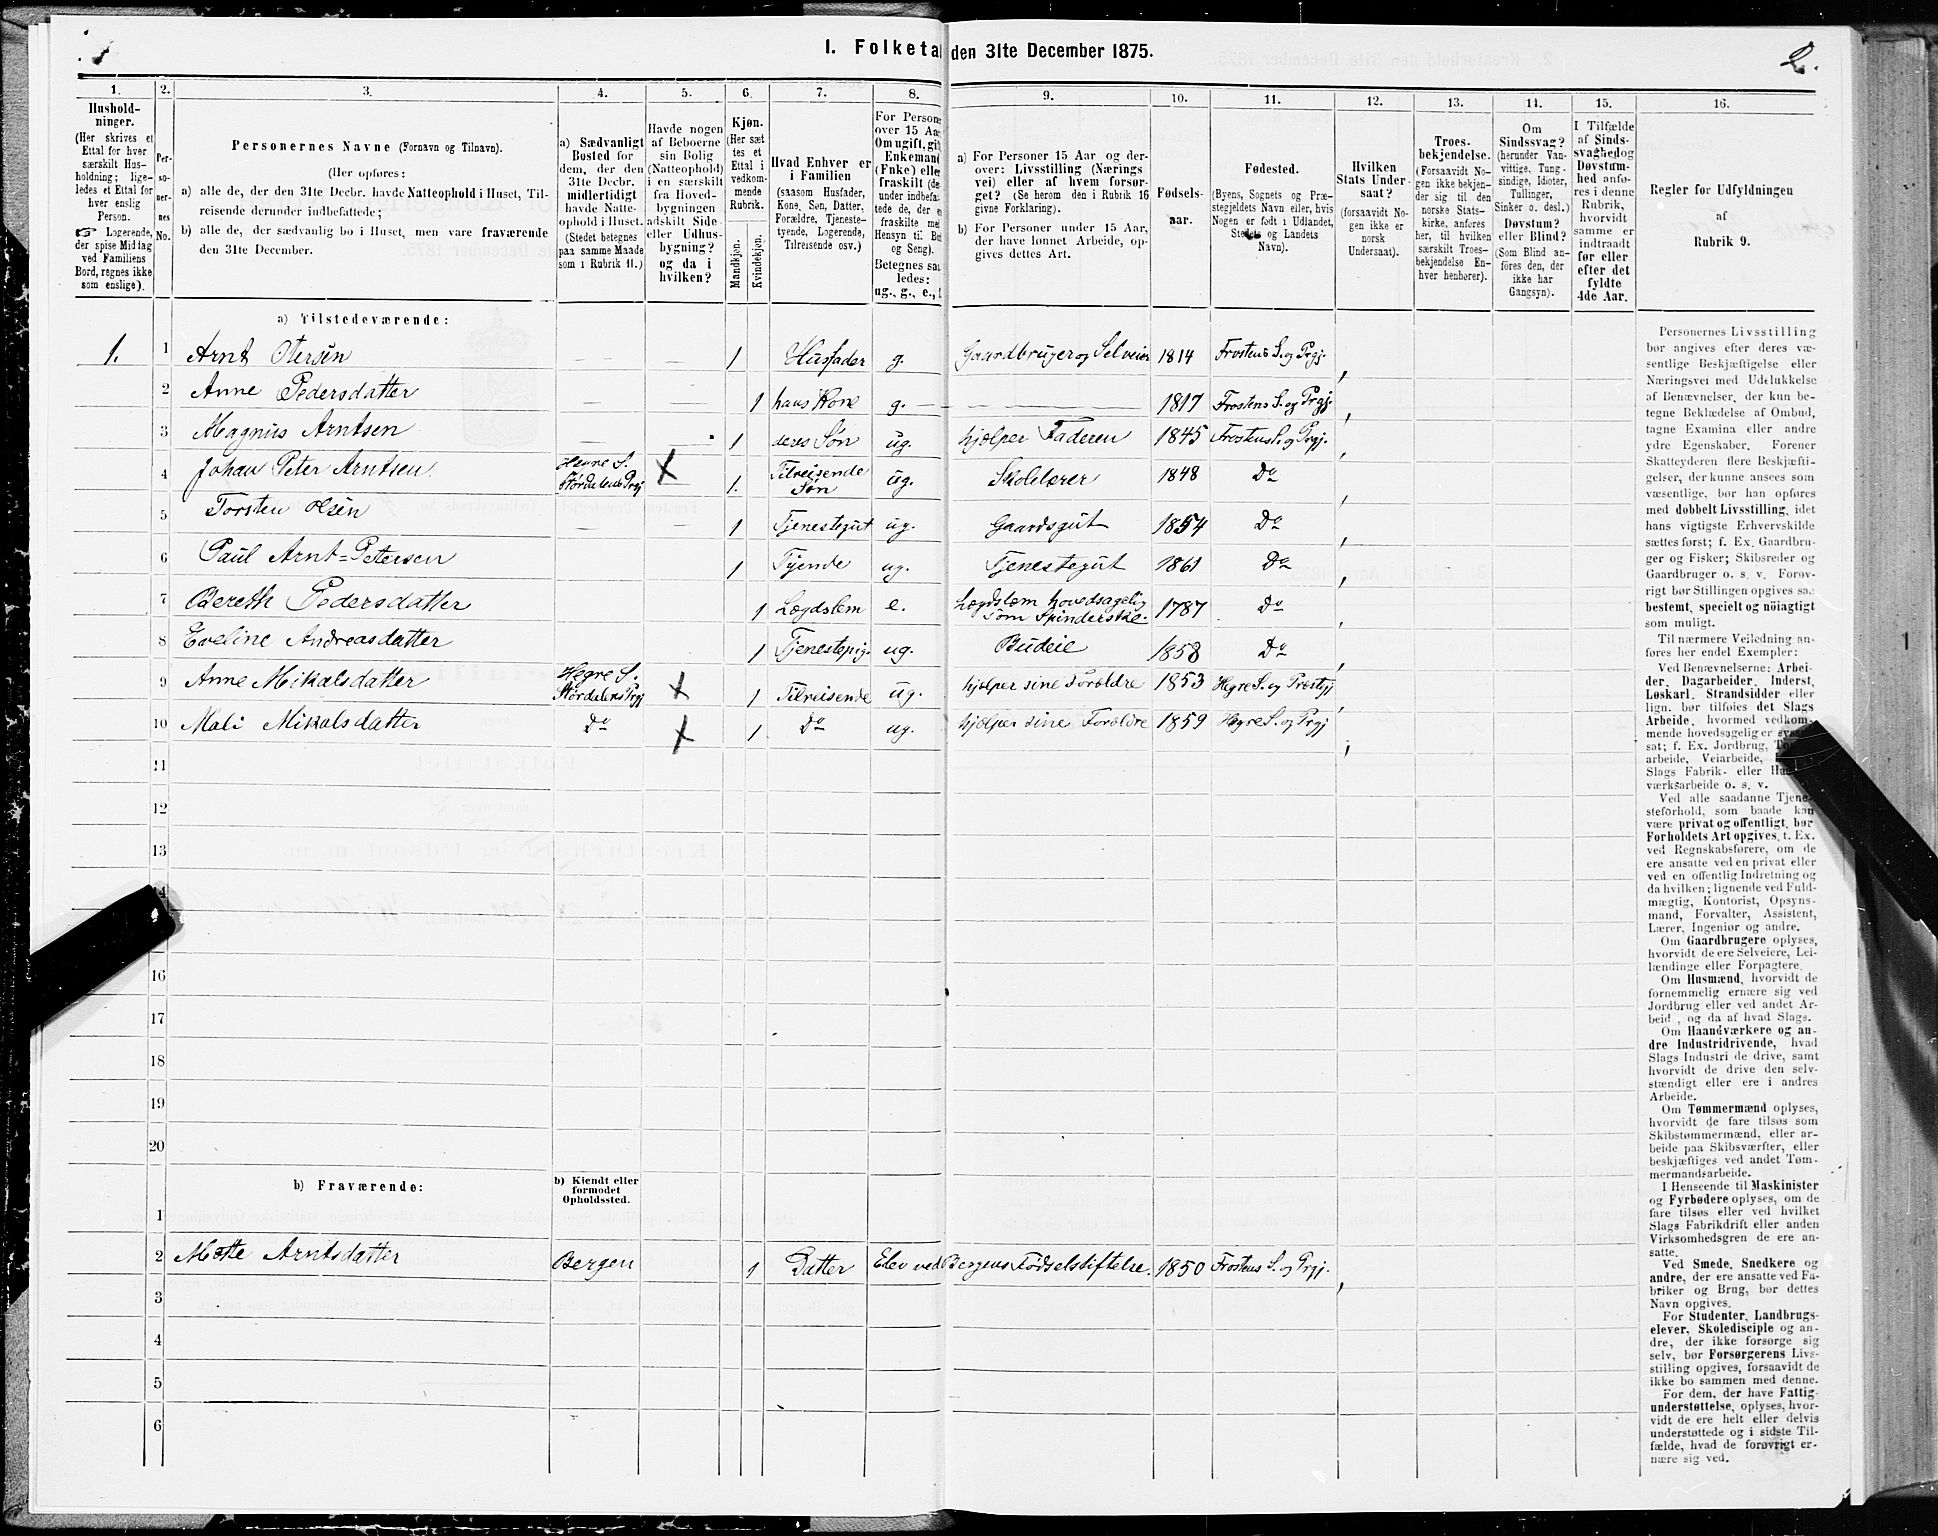 I. Folketal den 31te December 1875.
2.
1.
2.
3.
4.
5.
6.
7.
8.
9.
10.
11.
12.
13.
14.
15.
16.
Hushold-
ninger.
(Her skrives et
Ettal for hver
særskilt Hus-
holdning; lige-
ledes et Ettal for
hver enslig
Person.
☞ Logerende,
der spise Middag
ved Familiens
Bord, regnes ikke
som enslige).
Per-
so-
ner-
nes
No.
Personernes Navne (Fornavn og Tilnavn).
(Her opføres:
a) alle de, der den 31te Decbr. havde Natteophold i Huset, Til-
reisende derunder indbefattede;
b) alle de, der sædvanlig bo i Huset, men vare fraværende
den 31te December.
a) Sædvanligt
Bosted for
dem, der den
31te Decbr.
midlertidigt
havde Natte-
ophold i Huset.
(Stedet betegnes
paa samme Maade
som i Rubrik 11.)
Havde nogen
af Beboerne
sin Bolig
(Natteophold)
i en særskilt
fra Hoved-
bygningen
adskilt Side-
eller Udhus-
bygning?
og da i
hvilken?
Kjøn.
(Her sæt-
tes et
Ettal i
vedkom-
mende
Rubrik.
Mandkjøn.
Kvindekjøn.
Hvad Enhver er
i Familien
(saasom Husfader,
Kone, Søn, Datter,
Forældre, Tjeneste-
tyende, Logerende,
Tilreisende osv.)
For Persone
over 15 Aa
Om ugift, gi
Enkemand
(Enke) elle
fraskilt (de
under indbefa
tede de, der e
fraskilte med
Hensyn til Bo
og Seng).
Betegnes saa
ledes:
ug., g., e., f
a) For Personer 15 Aar og der-
over: Livsstilling (Nærings-
vei) eller af hvem forsør-
get? (Se herom den i Rubrik 16
givne Forklaring).
b) For Personer under 15 Aar,
der have lønnet Arbeide, op-
gives dettes Art.
Fødsels-
aar.
Fødested.
(Byens, Sognets og Præ-
stegjeldets Navn eller, hvis
Nogen er født i Udlandet,
Stedets og Landets
Navn).
Hvilken
Stats Under-
saat?
(forsaavidt No-
gen ikke er
norsk
Undersaat).
Troes-
bekjendelse.
(Forsaavidt No-
gen ikke bekjen-
der sig til den
norske Stats-
kirke, anføres
her, til hvilken
særskilt Troes-
bekjendelse En-
hver henhører).
Om
Sindssvag?
(herunder Van-
vittige, Tung-
sindige, Idioter,
Tullinger,
Sinker o. desl.)
Døvstum?
eller Blind?
(Som Blind an-
føres den, der
ikke har
Gangsyn).
I Tilfælde
af Sinds-
svaghed og
Døvstum-
hed anfø-
res i denne
Rubrik,
hvorvidt
samme er
indtraadt
før eller
efter det
fyldte
4de Aar.
Regler for Udfyldningen
af
Rubrik 9.
a) Tilstedeværende:
1. 1 Arnt Otersen — — 1 Husfader g. Gaardbruger og Selveier 1814 Frostens S. og Prgj.
2 Anne Pedersdatter — — 1 hans Kone g. — 1817 Frostens S. og Prgj.
3 Magnus Arntsen — — 1 deres Søn ug. hjælper Faderen 1845 Frostens S. og Prgj.
4 Johan Peter Arntsen Hegre S. Størdalens Prgj X 1. Tilreisende Søn ug. Skolelærer 1848 Do
5 Torsten Olsen — — 1 Tjenestegut ug. Gaardsgut 1854 Do
6 Paul Arnt-Petersen 1 Tyende ug. Tjenestegut 1861 Do
7 Bereth Pedersdatter 1 Lægdslem e. Lægdslem hovedsagelig som Spinderske. 1787 Do
8 Eveline Andreasdatter 1 Tjenestepig. ug. Budeie 1858 Do
9 Anne Mikalsdatter Hegre S. Størdalens Prgj X 1 Tilreisende ug. hjælper sine Forældre 1853 Hegre S. og Præstgj
10 Mali Mikalsdatter Do X 1 Do ug. hjælper sine Forældre 1859 Hegre S. og Prgj
11
12
13
14
16
17
18
19
20
b) Fraværende:
b) Kjendt eller
formodet
Opholdssted.
1
2 Mette Arntsdatter Bergen 1 Datter Elev ved Bergens Fødselstiftelse. 1850 Frostens S. og Prgj.
3
4
5
6
Personernes Livsstilling
bør angives efter deres væ-
sentlige Beskjæftigelse eller
Næringsvei med Udelukkelse
af Benævnelser, der kun be-
tegne Beklædelse af Ombud,
tagne Examina eller andre
ydre Egenskaber. Forener
Skatteyderen flere Beskjæfti-
gelser, der kunne ansees som
væsentlige, bør han opføres
med dobbelt Livsstilling, idet
hans vigtigste Erhvervskilde
sættes først; f. Ex. Gaardbru-
ger og Fisker; Skibsreder og
Gaardbruger o. s. v. Forøv-
rigt bør Stillingen opgives saa
bestemt, specielt og nöiagtigt
som muligt.
Til nærmere Veiledning an-
føres her endel Exempler:
Ved Benævnelserne: Arbei-
der, Dagarbeider, Inderst,
Løskarl, Strandsidder eller
lign. bør tilføies det Slags
Arbeide, hvormed vedkom-
mende hovedsagelig er syssel-
sat; f. Ex. Jordbrug, Tom
arbeide, Veiarbeide,
Slags Fabrik- eller Ha
værksarbeide o. s. v.
Ved alle saadanne Tjene-
steforhold, som baade kan
være privat og offentligt, bør
Forholdets Art opgives, t. Ex.
ved Regnskabsførere, om de
ere ansatte ved en privat eller
ved en offentlig Indretning og
da hvilken; lignende ved Fuld-
mægtig, Kontorist, Opsyns-
mand, Forvalter, Assistent,
Lærer, Ingeniør og andre.
Om Gaardbrugere oplyses,
hvorvidt de ere Selveiere, Lei-
lændinge eller Forpagtere.
Om Husmænd, hvorvidt de
fornemmelig ernære sig ved
Jordbrug eller ved andet Ar-
beid, og da af hvad Slags.
Om Haandværkere og an-
dre Industridrivende, hvad
Slags Industri de drive, samt
hvorvidt de drive den selv-
stændigt eller ere i andres
Arbeide.
Om Tømmermænd oplyses,
hvorvidt de fare tilsøs som
Skibstømmermænd, eller ar-
beide paa Skibsværfter, eller
beskjæftiges ved andet Tøm-
mermandsarbeide.
I Henseende til Maskinister
og Fyrbødere oplyses, om de
fare tilsøs eller ved hvilket
Slags Fabrikdrift eller anden
Virksomhedsgren de ere an-
satte.
Ved Smede, Snedkere og
andre, der ere ansatte ved Fa-
briker og Brug, bør dettes
Navn opgives.
For Studenter, Landbrugs-
elever, Skoledisciple og an-
dre, der ikke forsørge sig
selv, bør Forsørgerens Livs-
stilling opgives, forsaavidt de
ikke bo sammen med denne.
For dem, der have Fattig-
understøttelse, oplyses, hvor-
vidt de ere helt eller delvis
understøttede og i sidste Til-
fælde, hvad de forøvrigt er-
nære sig ved.